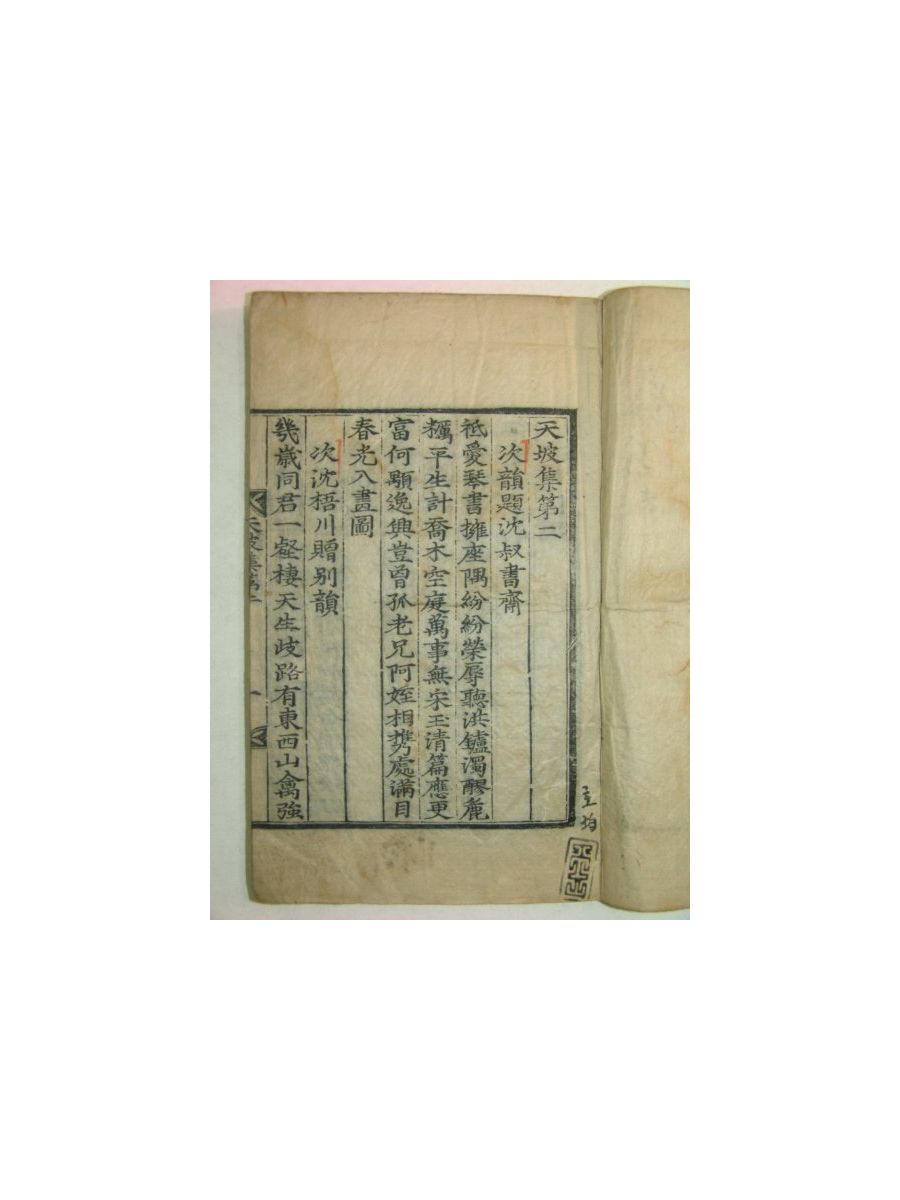 天坡集第二
次韻題沈叔書齋
祗愛琴書擁座隅紛紛榮辱聽洪鑪濁醪麁
糲平生計喬木空庭萬事無宋玉清篇應更
富何顒逸興豈曾孤老兄阿姪相携處滿目
春光入畫圖
次沈梧川贈别韻
幾歲同君一壑棲天生歧路有東西山禽強
天坡集第二
一